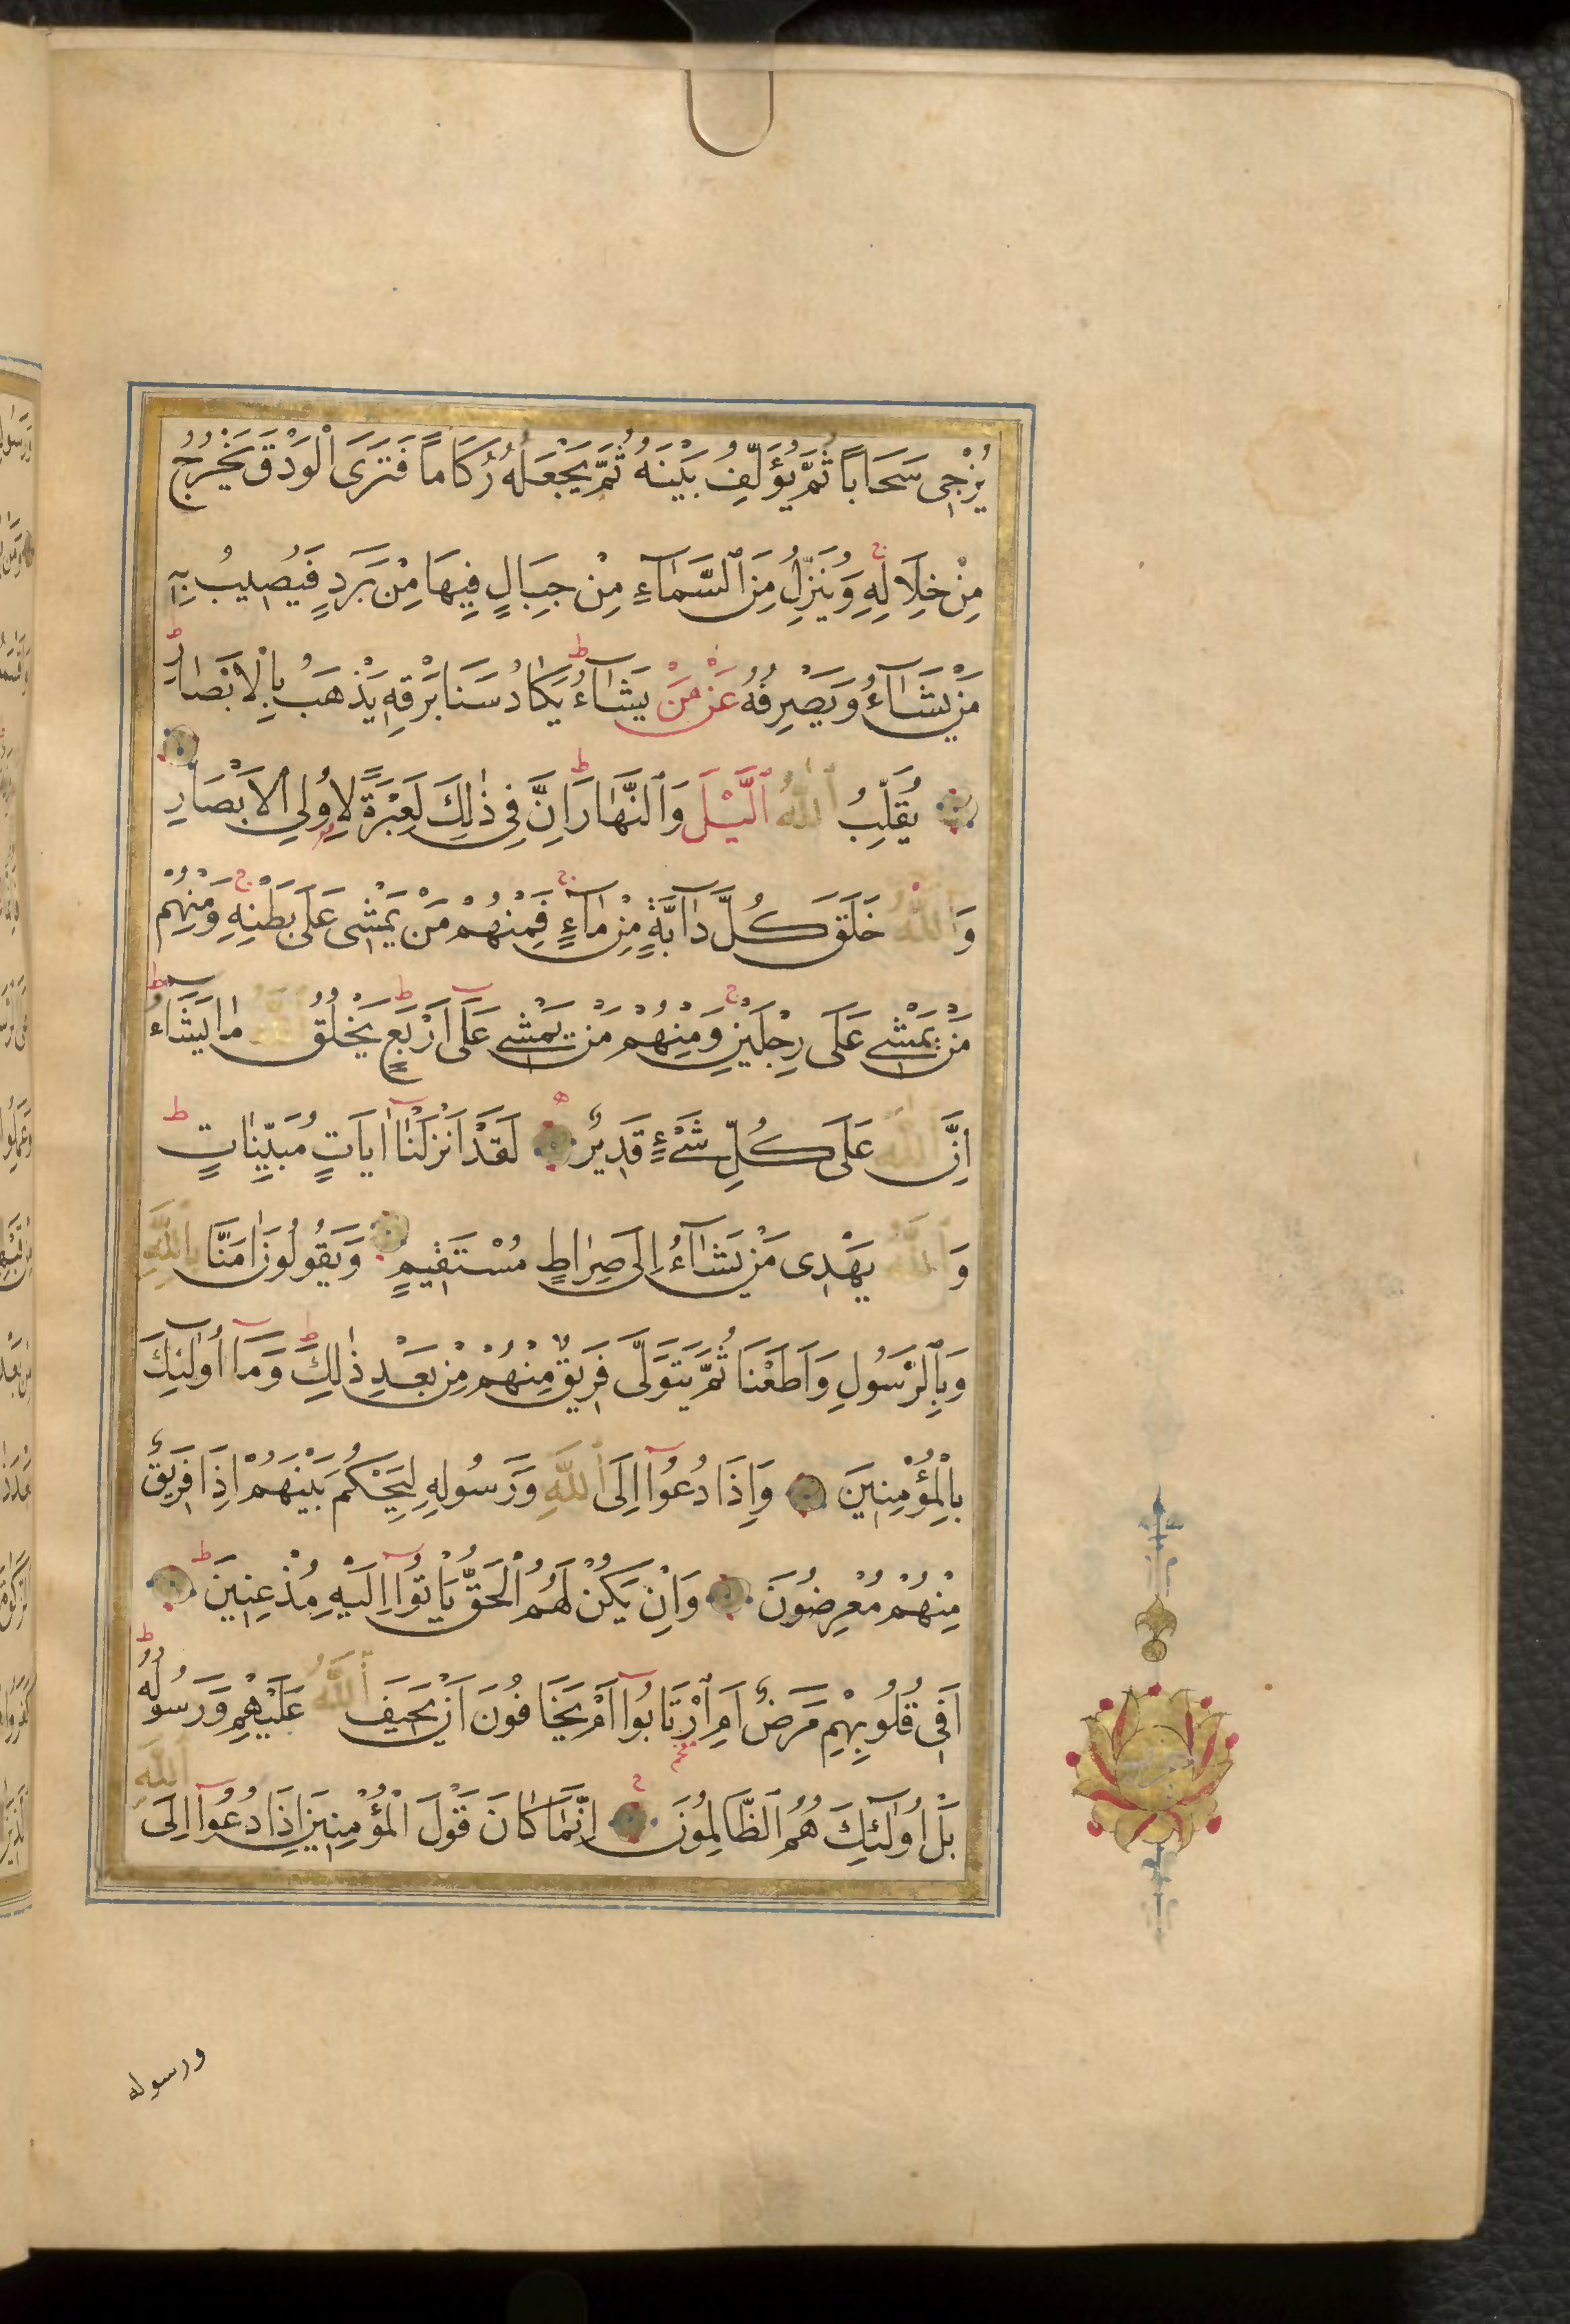 يُزْجِى سَحَاباً ثُمَّ يُؤَلِّفُ بَيْنَهُ ثُمَّ يَجْعَلُهُ رُكَاماً فَتَرَى الْوَدْقَ يَخْرُجُ
مِنْ خِلَالِهِ وَيُنَزِّلُ مِنَ السَّمَاءِ مِنْ جِبَالٍ فِيهَا مِنْ بَرَدٍ فَيُصِيبُ بِهِ
مَنْ يَشَاءُ وَيَصْرِفُهُ عَنْ مَنْ يَشَاءُ يَكَادُ سَنَا بَرْقِهِ يَذْهَبُ بِالْاَبْصَارِ
يُقَلِّبُ اللّٰهُ الَّيْلَ وَالنَّهَارَ اِنَّ فِى ذٰلِكَ لَعِبْرَةً لِاُولِى الْاَبْصَارِ
وَاللّٰهُ خَلَقَ كُلَّ دَابَّةٍ مِنْ مَاءٍ فَمِنْهُمْ مَنْ يَمْشِى عَلَى بَطْنِهِ وَمِنْهُمْ
مَنْ يَمْشِى عَلَى رِجْلَيْنِ وَمِنْهُمْ مَنْ يَمْشِى عَلَى اَرْبَعٍ يَخْلُقُ اللّٰهُ مَا يَشَاءُ
اِنَّ اللّٰهَ عَلَى كُلِّ شَىْءٍ قَدِيرٌ لَقَدْ اَنْزَلْنَا اٰيَاتٍ مُبَيِّنَاتٍ
وَاللّٰهُ يَهْدِى مَنْ يَشَاءُ اِلَى صِرَاطٍ مُسْتَقِيمٍ وَيَقُولُونَ اٰمَنَّا بِاللّٰهِ
وَبِالرَّسُولِ وَاَطَعْنَا ثُمَّ يَتَوَلَّى فَرِيقٌ مِنْهُمْ مِنْ بَعْدِ ذٰلِكَ وَمَا اُولٰئِكَ
بِالْمُؤْمِنِينَ وَاِذَا دُعُوا اِلَى اللّٰهِ وَرَسُولِهِ لِيَحْكُمَ بَيْنَهُمْ اِذَا فَرِيقٌ
مِنْهُمْ مُعْرِضُونَ وَاِنْ يَكُنْ لَهُمُ الْحَقُّ يَاْتُوا اِلَيْهِ مُذْعِنِينَ
اَفِى قُلُوبِهِمْ مَرَضٌ اَمِ ارْتَابُوا اَمْ يَخَافُونَ اَنْ يَحِيفَ اللّٰهُ عَلَيْهِمْ وَرَسُولُهُ
بَلْ اُولٰئِكَ هُمُ الظَّالِمُونَ اِنَّمَا كَانَ قَوْلَ الْمُؤْمِنِينَ اِذَا دُعُوا اِلَى اللّٰهِ
ورسوله